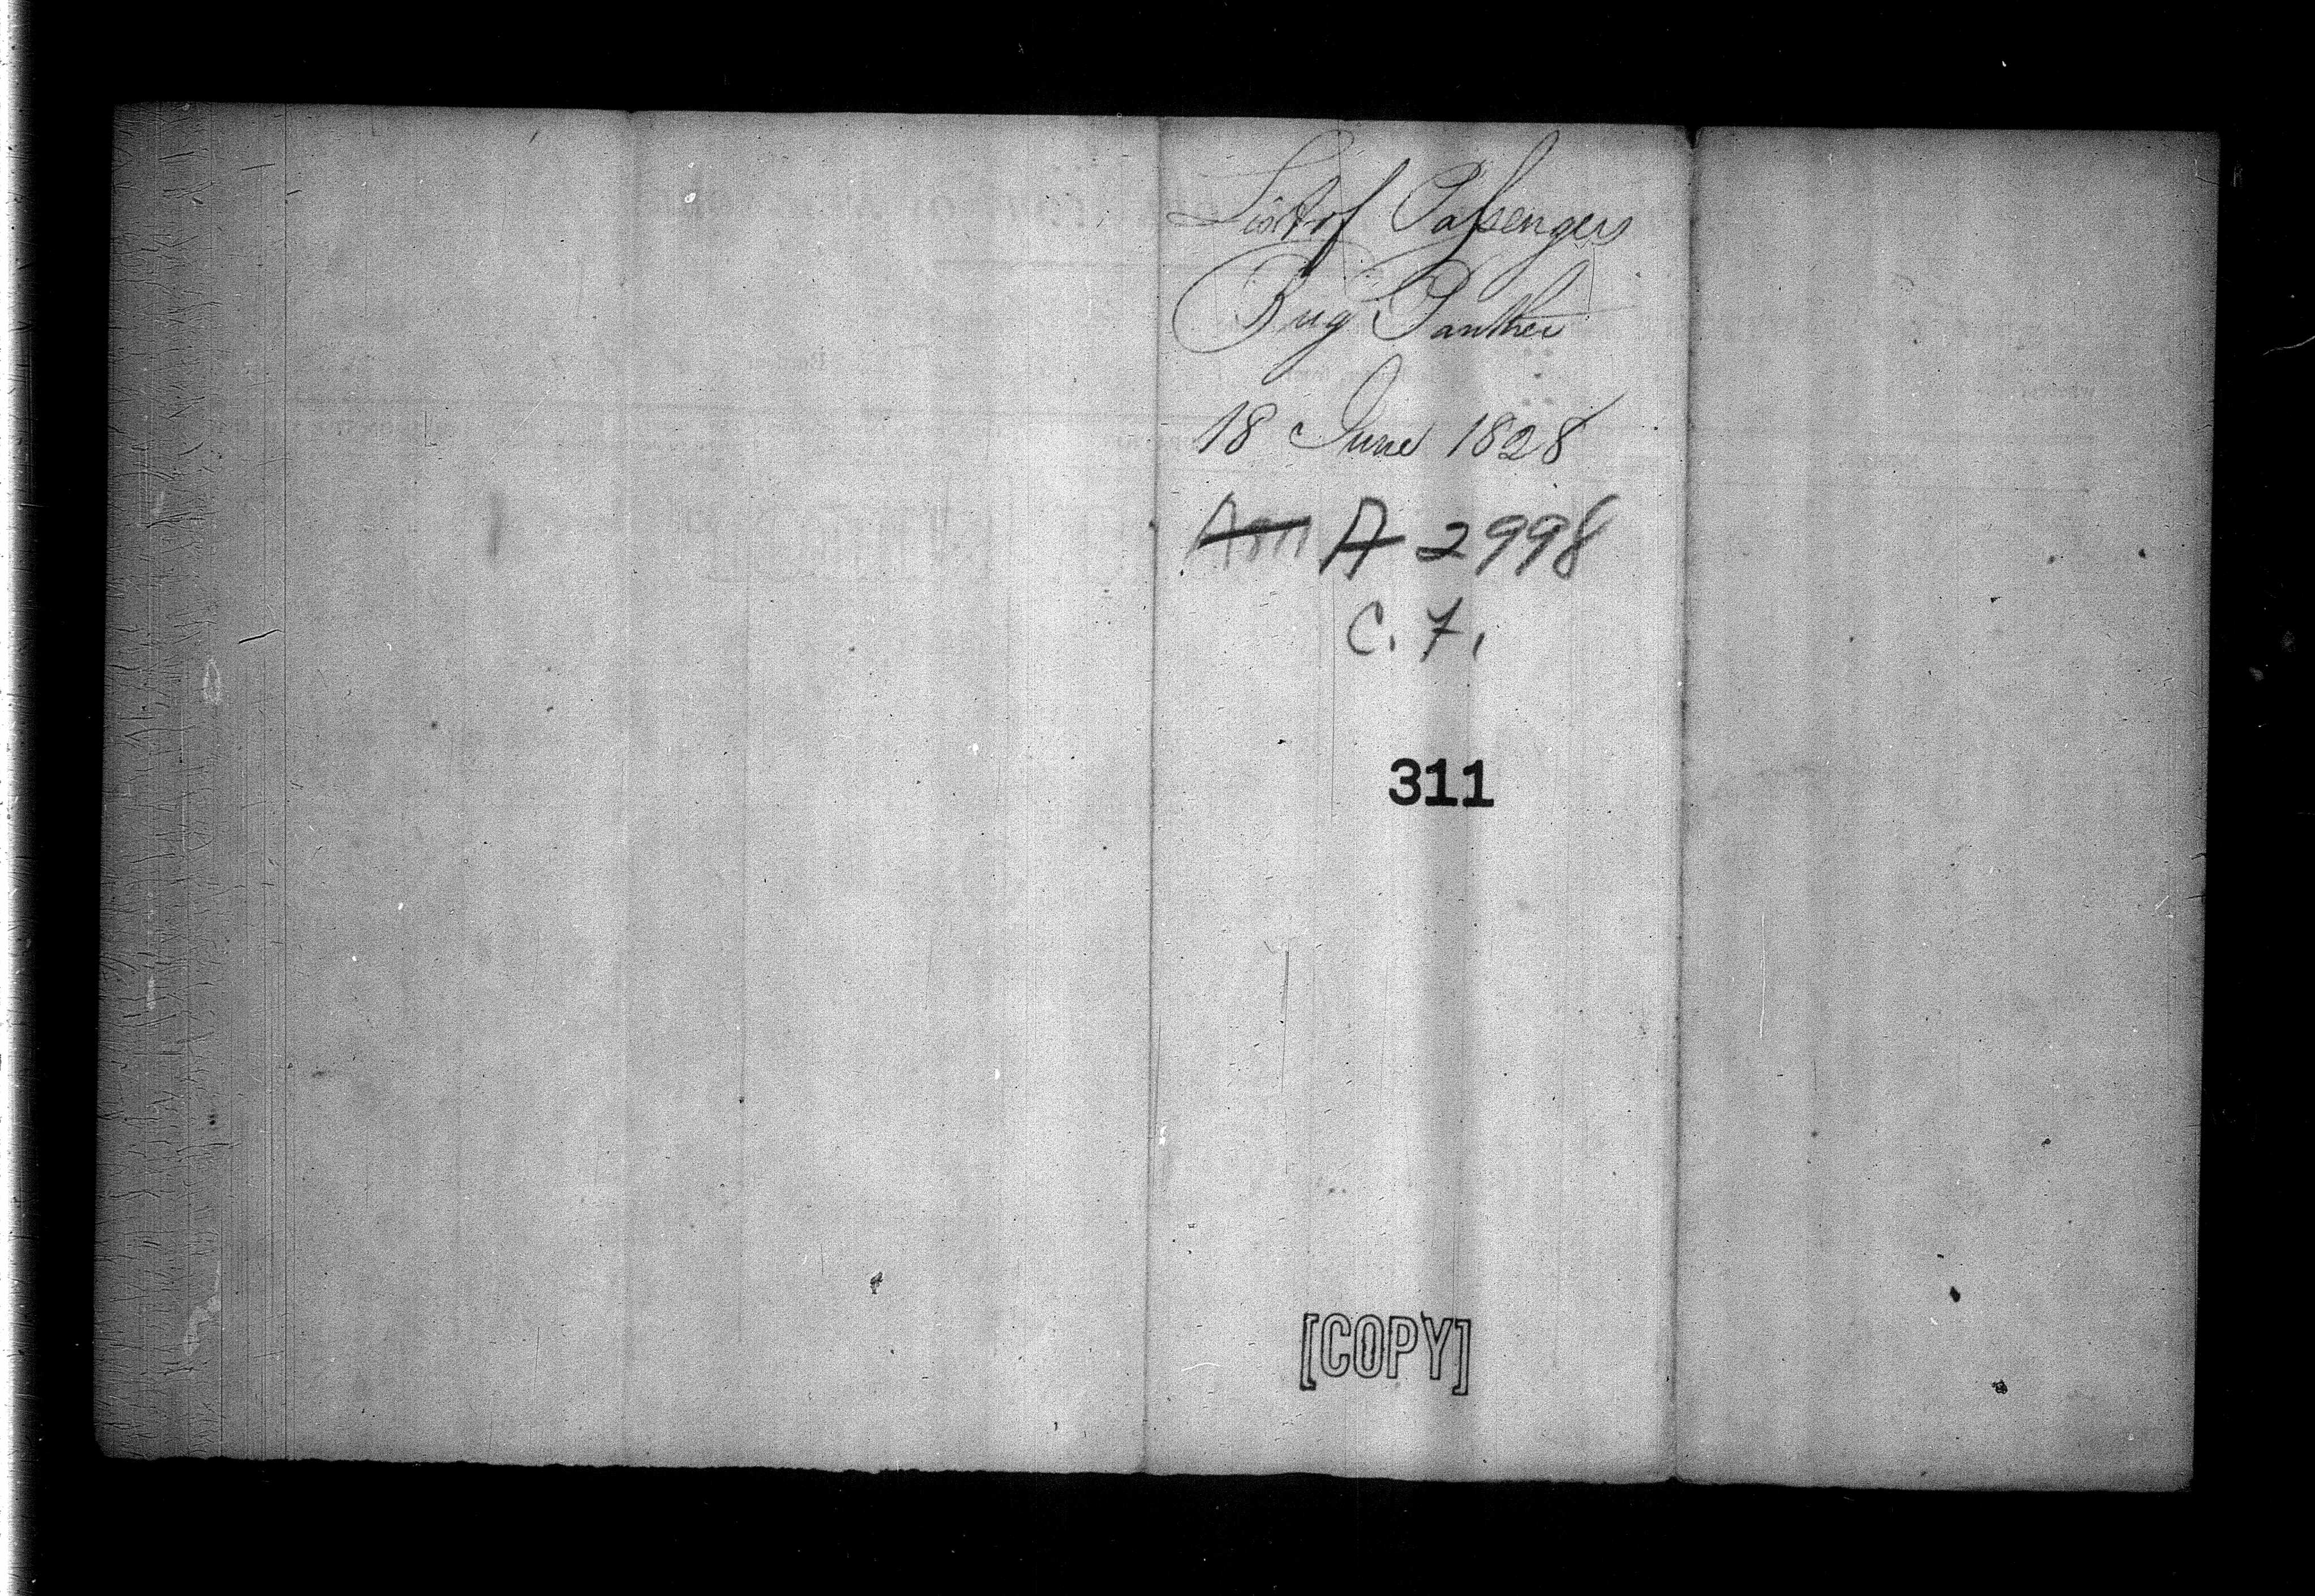 List of Passengers
Brig Panther
18 June 1828
Am A 2998
C. F.
311
[COPY]